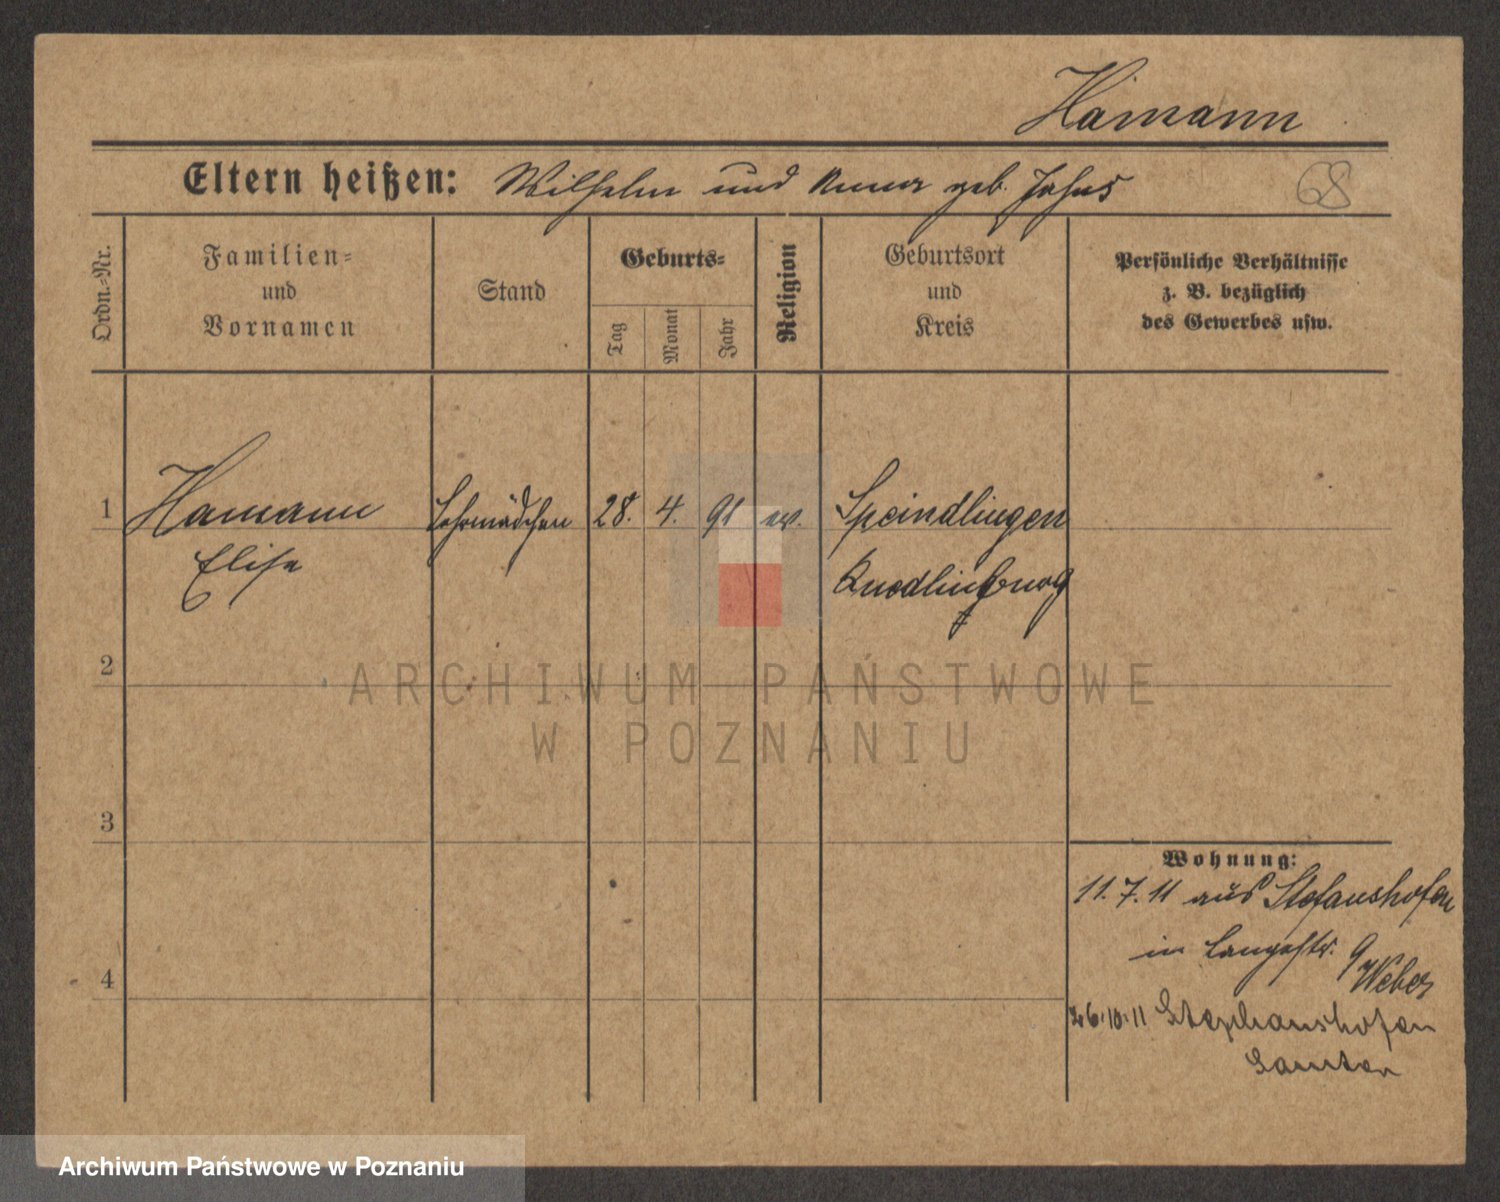 Hamann
Eltern heißen: Wilhelm und Anna geb. Jahns
68
Ordn.-Nr.
Familien-
und
Vornamen
Stand
Geburts-
Tag
Monat
Jahr
Religion
Geburtsort
und
Kreis
Persönliche Verhältnisse
z. B. bezüglich
des Gewerbes usw.
1 Hamann Lehrmädchen 28. 4. 91 ev.
Elise
Quedlinburg
2
3
4
Wohnung:
11.7.11 aus Stefanshofen
in Langestr. 9
Weber
26.10.11 Stephanshofen
Samter
ARCHIWUM PAŃSTWOWE
W POZNANIU
Archiwum Państwowe w Poznaniu